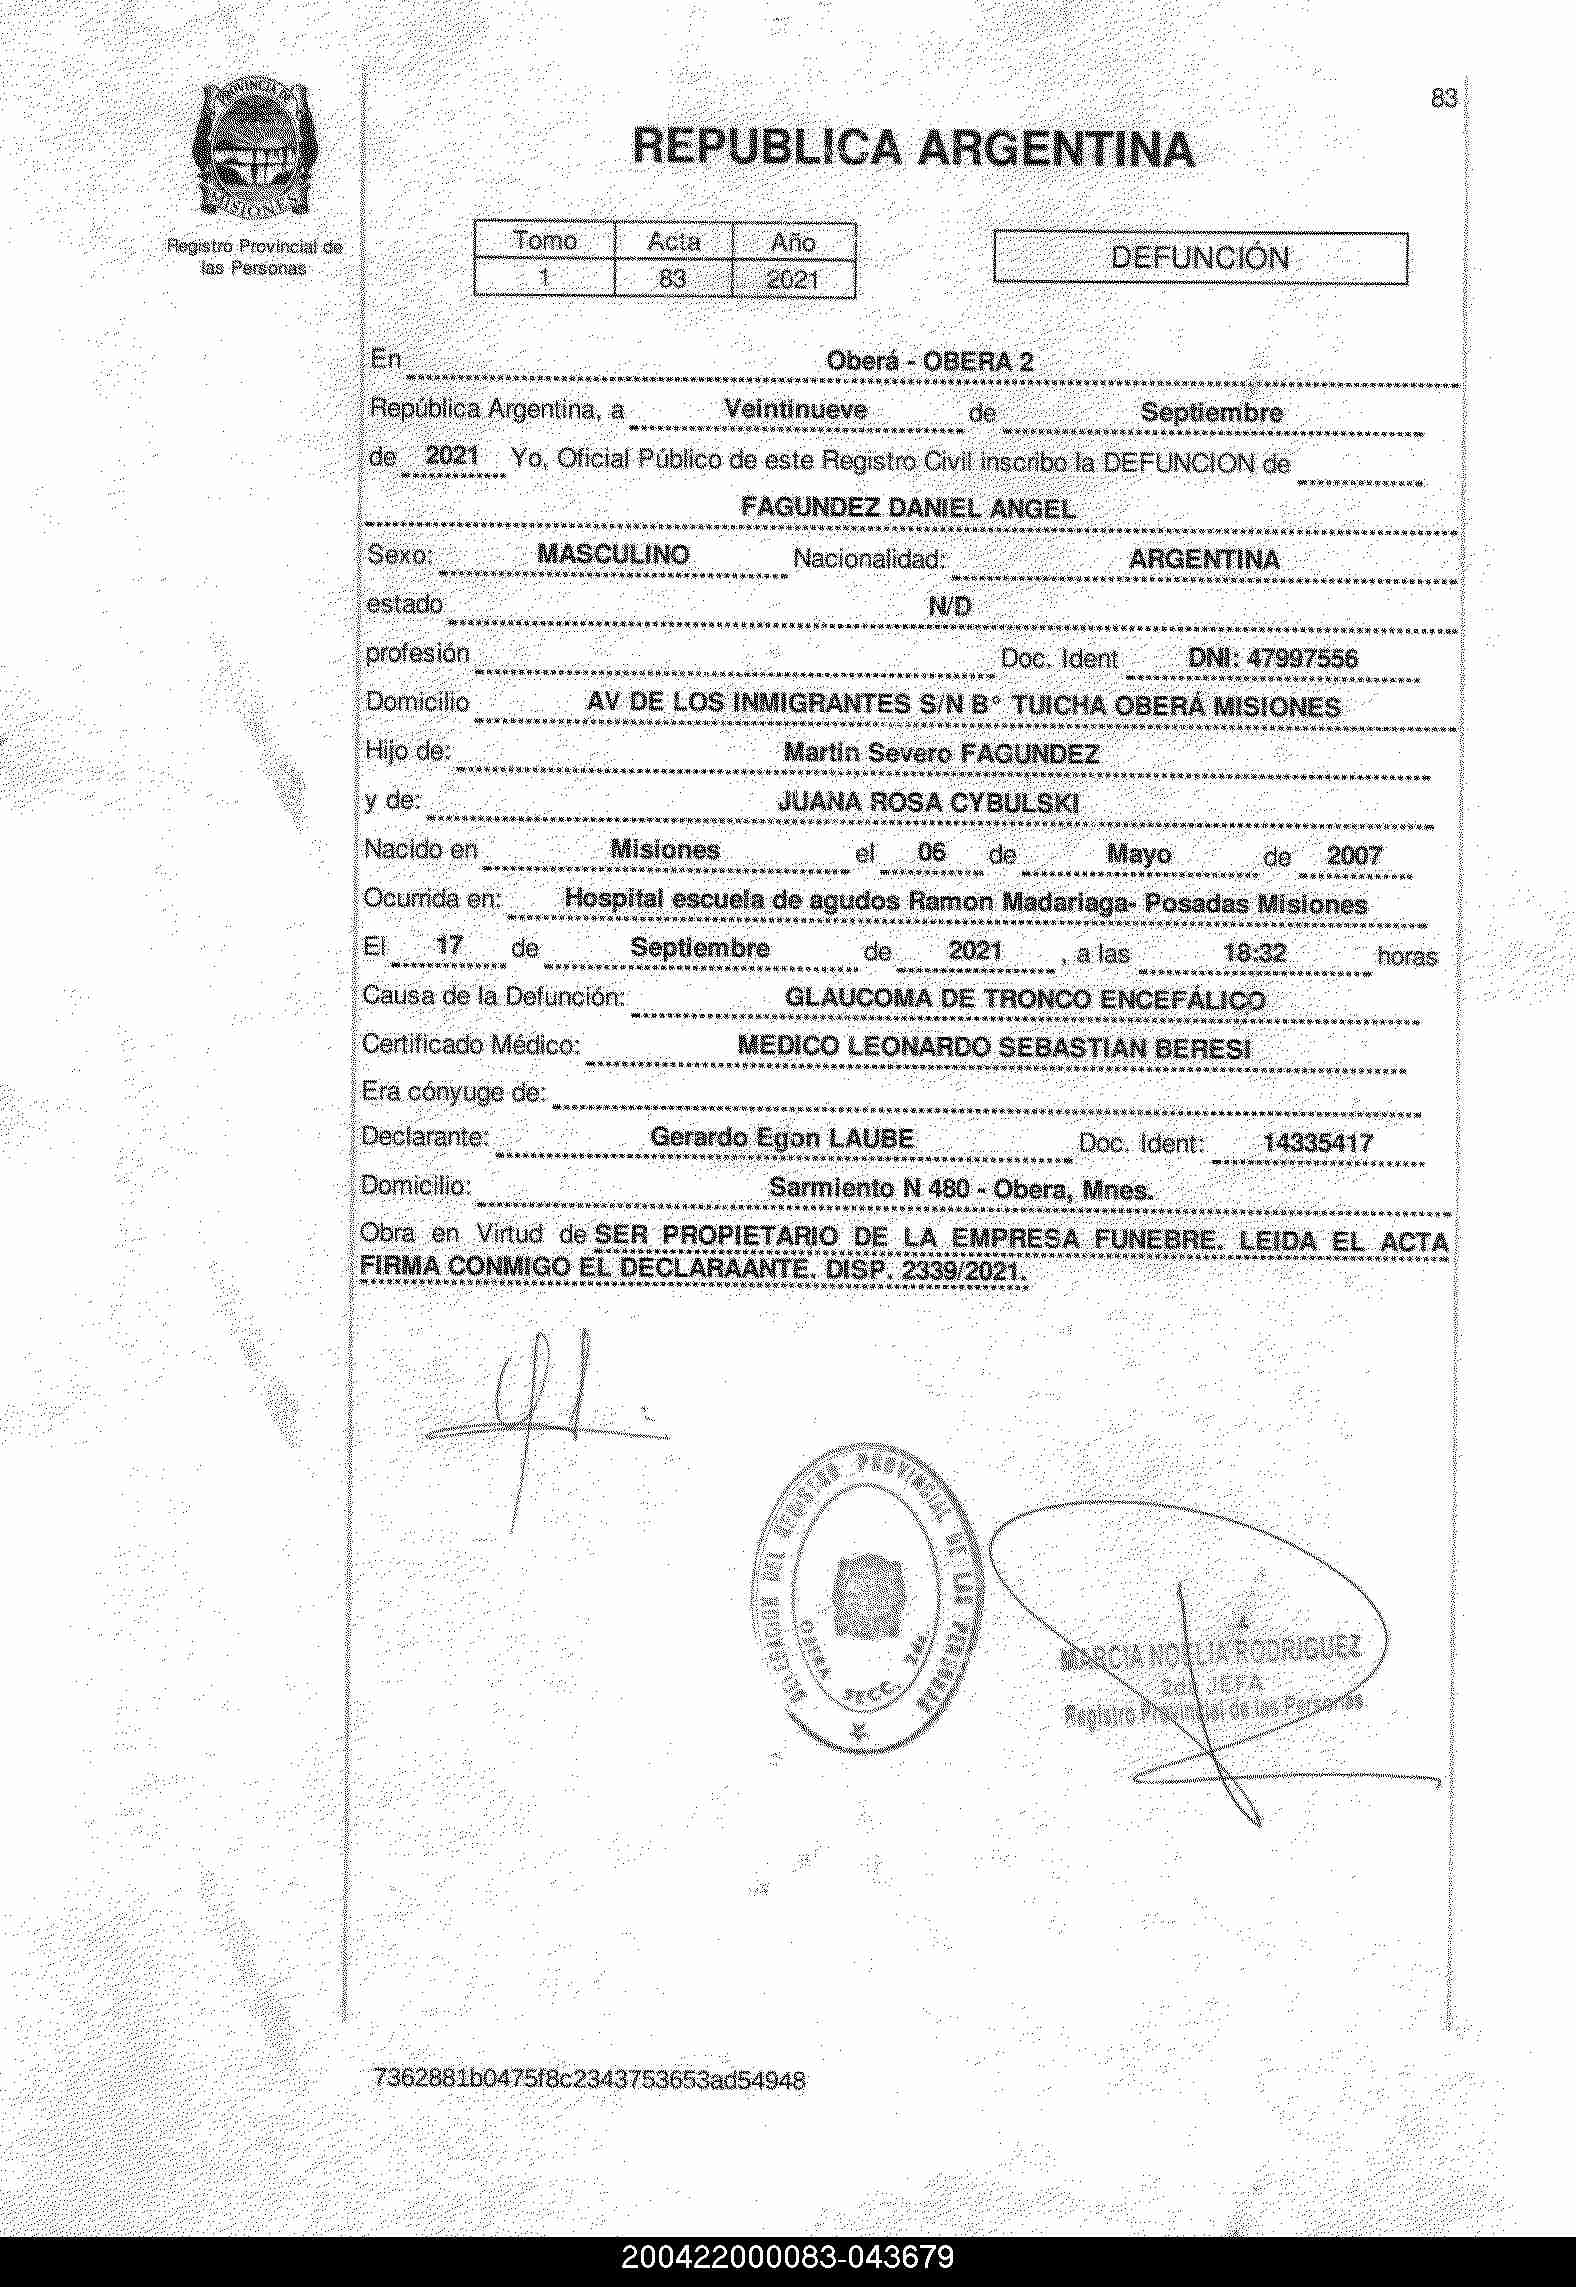 83
PROVINCIA DE
MISIONES
Registro Provincial de
las Personas
REPUBLICA ARGENTINA
Tomo Acta Año
1 83 2021
DEFUNCIÓN
En Oberá - OBERA 2
República Argentina, a Veintinueve de Septiembre
de 2021 Yo, Oficial Público de este Registro Civil inscribo la DEFUNCION de
FAGUNDEZ DANIEL ANGEL
Sexo: MASCULINO Nacionalidad: ARGENTINA
estado N/D
profesión Doc. Ident DNI: 47997556
Domicilio AV DE LOS INMIGRANTES S/N B° TUICHA OBERÁ MISIONES
Hijo de: Martin Severo FAGUNDEZ
y de: JUANA ROSA CYBULSKI
Nacido en Misiones el 06 de Mayo de 2007
Ocurrida en: Hospital escuela de agudos Ramon Madariaga- Posadas Misiones
El 17 de Septiembre de 2021 , a las 18:32 horas
Causa de la Defunción: GLAUCOMA DE TRONCO ENCEFÁLICO
Certificado Médico: MEDICO LEONARDO SEBASTIAN BERESI
Era cónyuge de:
Declarante: Gerardo Egon LAUBE Doc. Ident: 14335417
Domicilio: Sarmiento N 480 - Obera, Mnes.
Obra en Virtud de SER PROPIETARIO DE LA EMPRESA FUNEBRE. LEIDA EL ACTA
FIRMA CONMIGO EL DECLARAANTE. DISP. 2339/2021.
REGISTRO PROVINCIAL DE LAS PERSONAS
OBERA SECC.
MARCIA NOELIA RODRIGUEZ
JEFA
Registro Provincial de las Personas
7362881b0475f8c2343753653ad54948
200422000083-043679